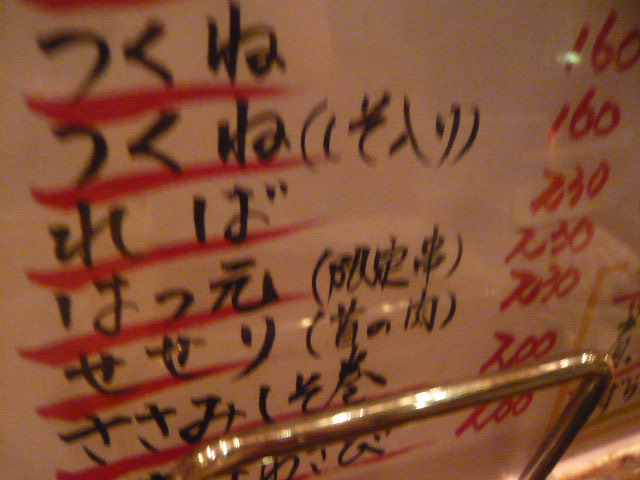 つくね 160
つくね(しそ入り) 160
ればー 230
はつ元(限定串) 230
せせり(首の肉) 230
ささみしそ巻 200
わさび 200